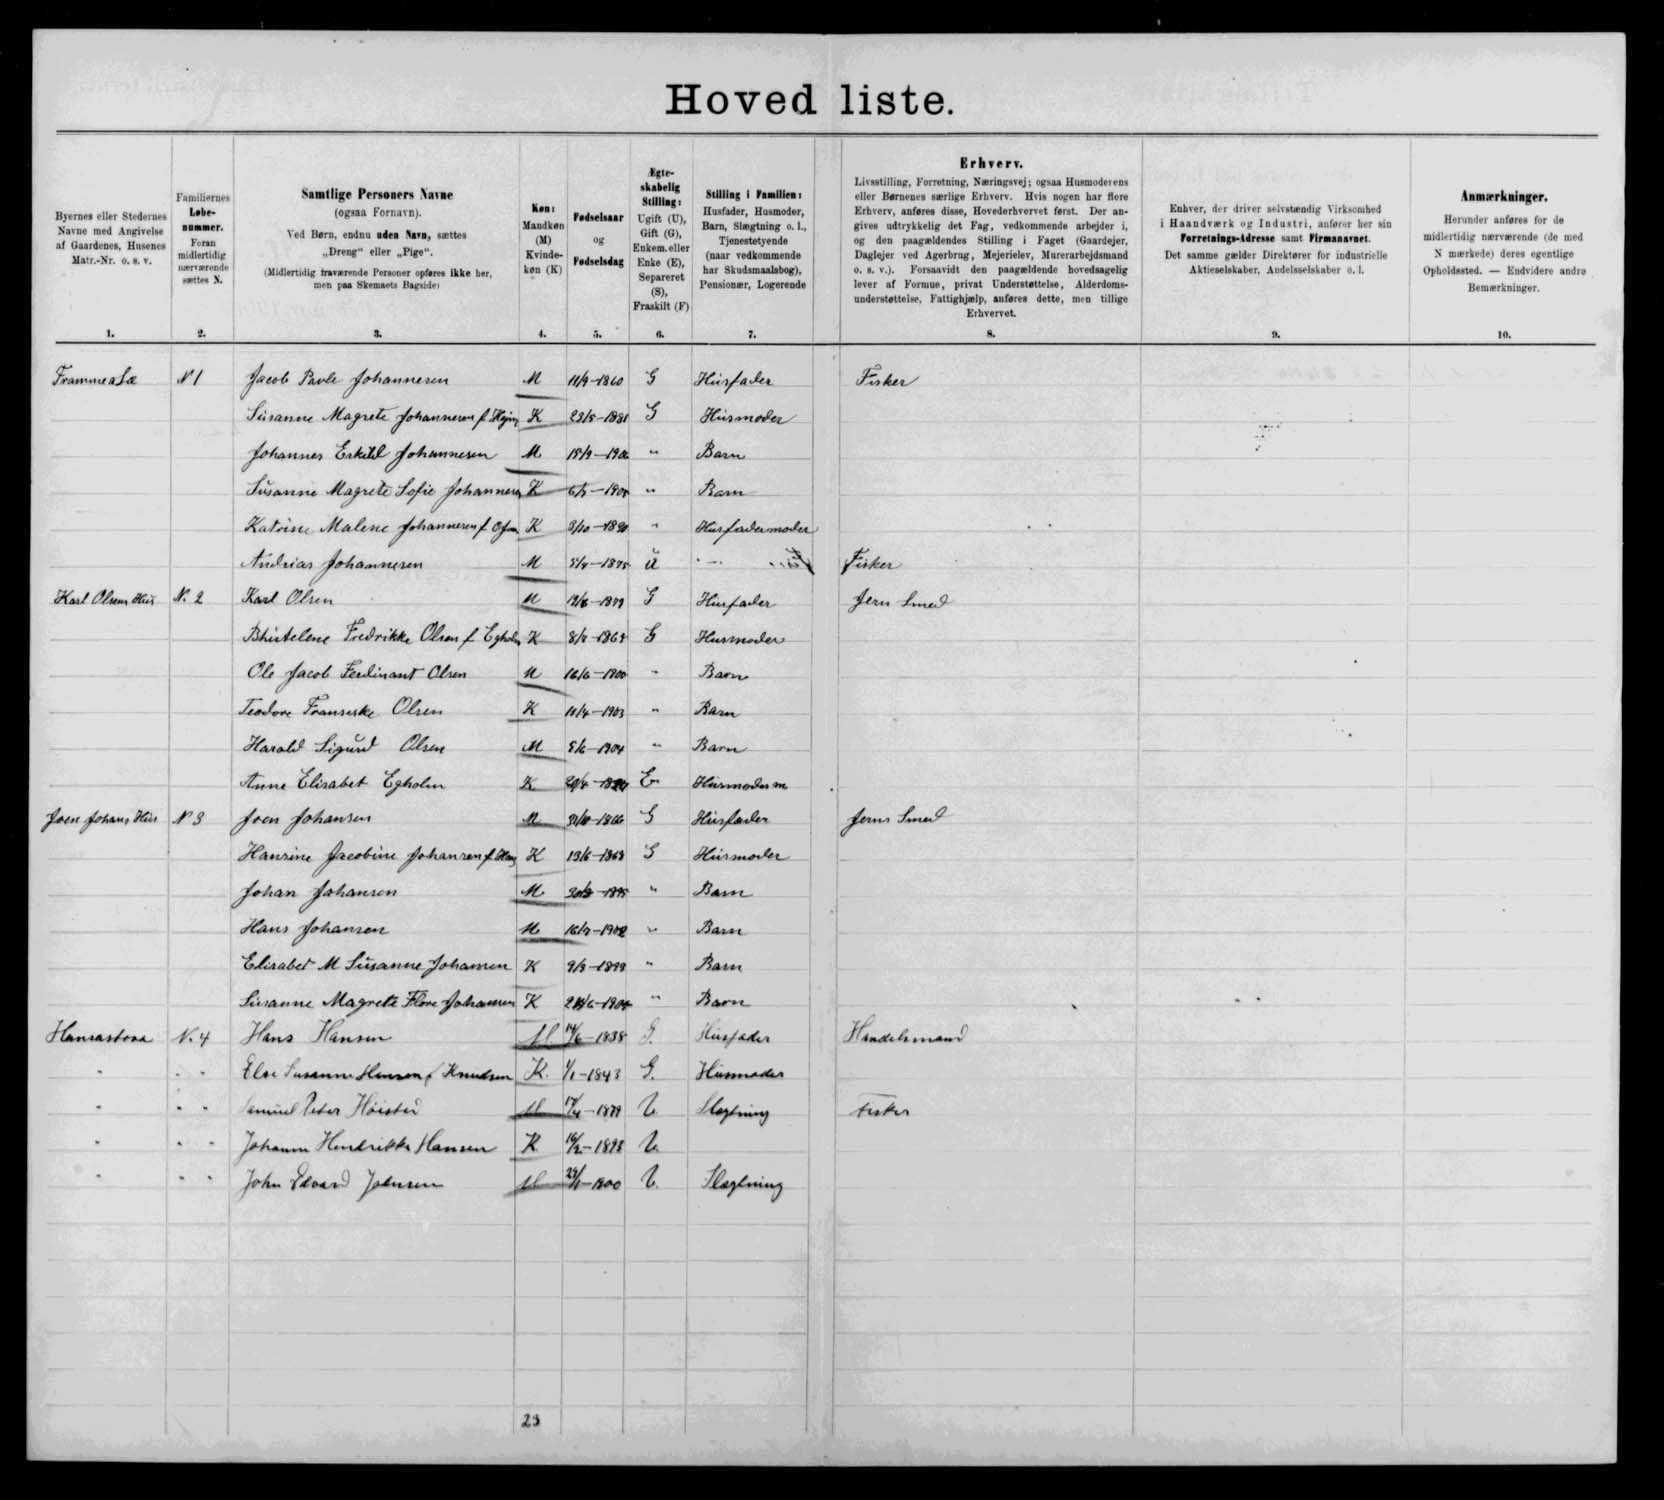 Hovedliste.
Byernes eller Stedernes Navne med Angivelse af Gaardenes, Husenes Matr.-Nr. o. s. v.
Familiernes Løbenummer. Foran midlertidig nærværende sættes N.
Samtlige Personers Navne (ogsaa Fornavn). Ved Børn, endnu uden Navn, sættes „Dreng“ eller „Pige“. (Midlertidig fraværende Personer opføres ikke her, men paa Skemaets Bagside)
Køn: Mandkøn (M) Kvindekøn (K)
Fødselsaar og Fødselsdag
Ægteskabelig Stilling: Ugift (U), Gift (G), Enkem. eller Enke (E), Separeret (S), Fraskilt (F)
Stilling i Familien: Husfader, Husmoder, Barn, Slægtning o. l., Tjenestetyende (naar vedkommende har Skudsmaalsbog), Pensionær, Logerende
Erhverv. Livsstilling, Forretning, Næringsvej; ogsaa Husmoderens eller Børnenes særlige Erhverv. Hvis nogen har flere Erhverv, anføres disse, Hovederhvervet først. Der angives udtrykkelig det Fag, vedkommende arbejder i, og den paagældendes Stilling i Faget (Gaardejer, Daglejer ved Agerbrug, Mejerielev, Murerarbejdsmand o. s. v.). Forsaavidt den paagældende hovedsagelig lever af Formue, privat Understøttelse, Alderdomsunderstøttelse, Fattighjælp, anføres dette, men tillige Erhvervet.
Enhver, der driver selvstændig Virksomhed i Haandværk og Industri, anfører her sin Forretnings-Adresse samt Firmanavnet. Det samme gælder Direktører for industrielle Aktieselskaber, Andelsselskaber o. l.
Anmærkninger. Herunder anføres for de midlertidig nærværende (de med N mærkede) deres egentlige Opholdssted. — Endvidere andre Bemærkninger.
1. 2. 3. 4. 5. 6. 7. 8. 9. 10.
N 1 Jacob Pavle Johannesen M 11/9-1860 G Husfader Fisker
Susanne Magrete Johannesen f. K 23/5-1881 G Husmoder
Johannes Eskild Johannesen M " Barn
Susanne Magrete Sofie Johannesen K " Barn
Katrine Malene Johannesen f. K " Husfadermoder
Andrias Johannesen M U Fisker
Karl Olsens Hus N. 2 Karl Olsen M G Husfader Jern Smed
Fredrikke Olsen f. Egholm K G Husmoder
Ole Jacob Ferdinant Olsen M 16/6-1900 " Barn
Teodore Franseske Olsen K 11/4-1903 " Barn
Harald Sigurd Olsen M 5/6-1904 " Barn
Anne Elisabet Egholm K E Husmoderm
Joen Johans Hus N 3 Joen Johansen M G Husfader Jern Smed
Hansine Jacobine Johansen f. K 13/6-1868 G Husmoder
Johan Johansen M " Barn
Hans Johansen M " Barn
Elisabet M Susanne Johansen K 9/3-1899 " Barn
Susanne Magrete Flore Johansen K " Barn
Hansastova N. 4 Hans Hansen M 14/6-1838 G. Husfader Handelsmand
" " " Else Susanne Hansen f. Knudsen K. 1/1-1843 G. Husmoder
" " " Samuel Peter M U Slægtning Fisker
" " " Johanne Hendrikke Hansen K U.
" " " John Edvard M 1900 U. Slægtning
23